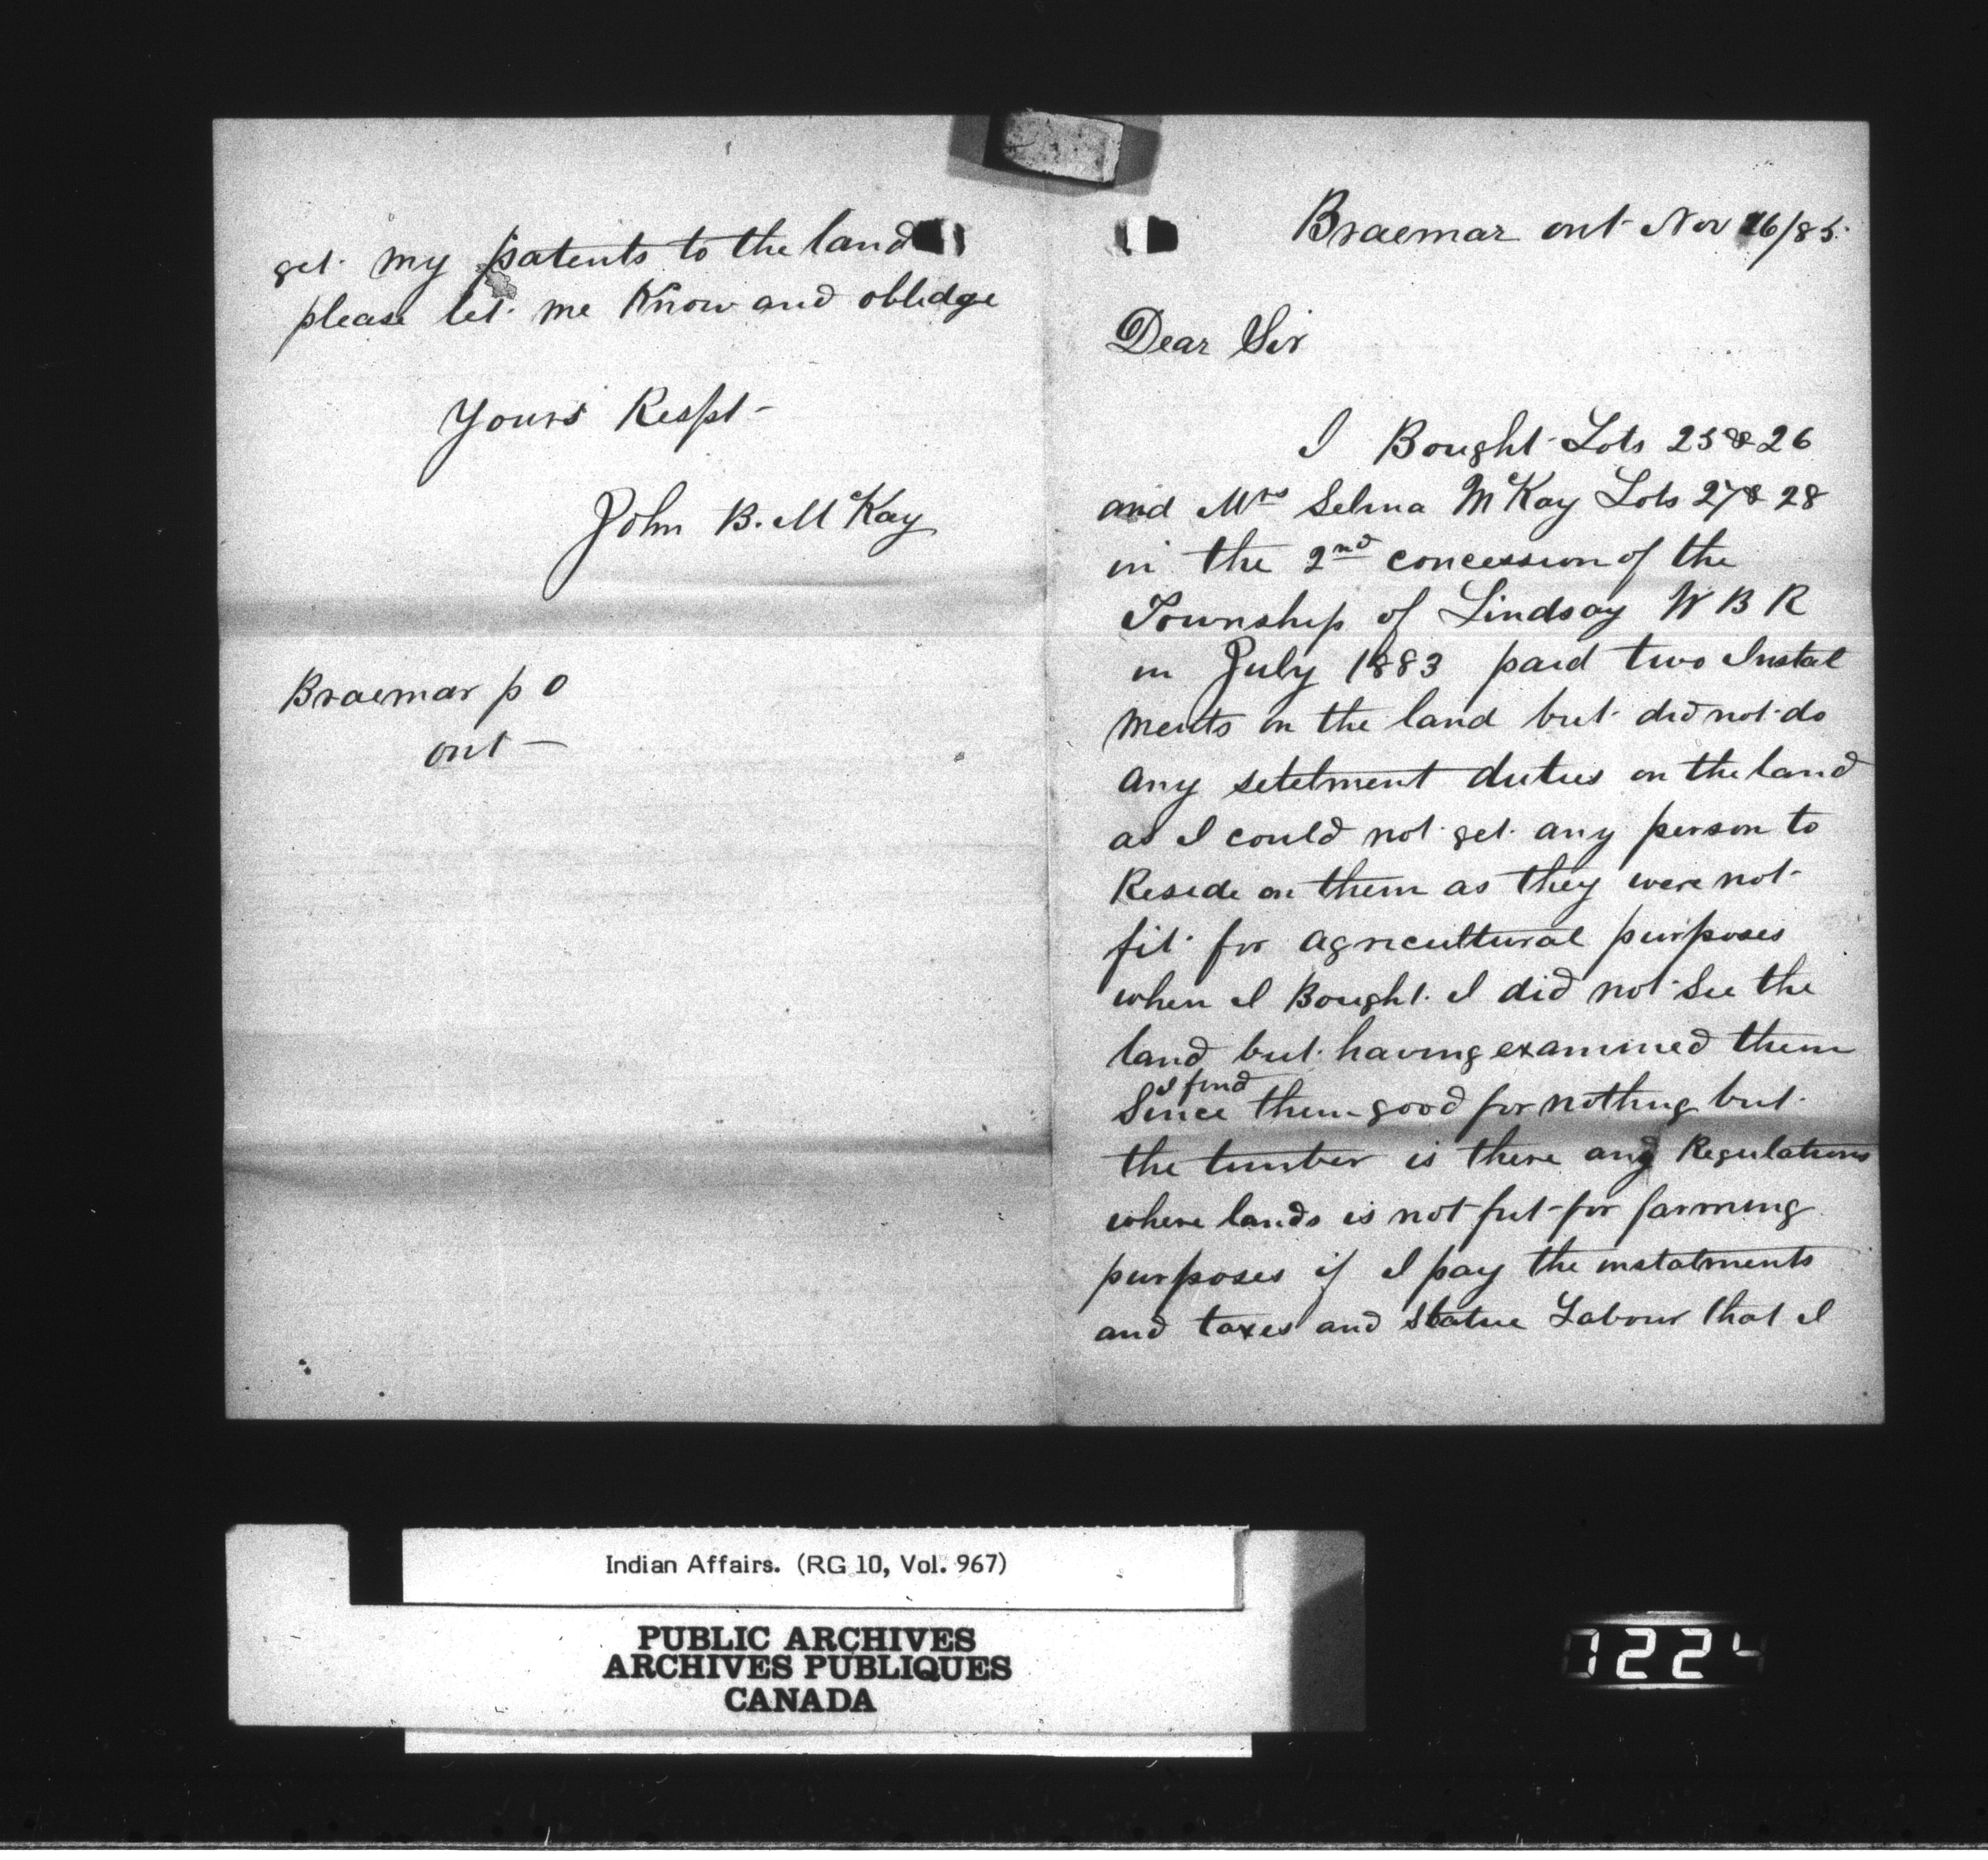 Braemar ont Nov 26/85
Dear Sir
I Bought Lots 25 & 26
and Mrs Selina McKay Lots 27 & 28
in the 2nd concession of the
Township of Lindsay W B R
in July 1883 paid two Instal
ments on the land but did not do
any setelment duties on the land
as I could not get any person to
Reside on them as they were not
fit for agricultural purposes
when I Bought I did not See the
land but having examined them
Since I find them good for nothing but
the timber is there any Regulations
where lands is not fit for farming
purposes if I pay the instalments
and taxes and Statue Labour that I
get my patents to the land
please let me Know and obledge
Yours Respt
John B. McKay
Braemar p O
ont
Indian Affairs. (RG 10, Vol. 967)
PUBLIC ARCHIVES
ARCHIVES PUBLIQUES
CANADA
1224